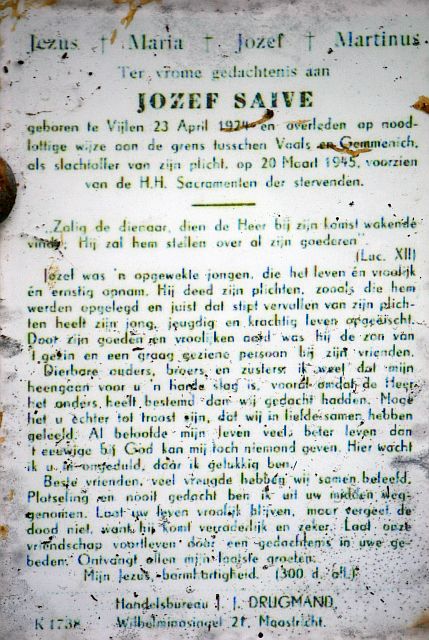 Jezus † Maria † Jozef † Martinus
Ter vrome gedachtenis aan
JOZEF SAIVE
geboren te Vijlen 23 April 1924 en overleden op nood-
lottige wijze aan de grens tusschen Vaals en Gemmenich,
als slachtoffer van zijn plicht, op 20 Maart 1945, voorzien
van de H.H. Sacramenten der stervenden.
„Zalig de dienaar, dien de Heer bij zijn komst wakende
vindt; Hij zal hem stellen over al zijn goederen"
(Luc. XII)
Jozef was 'n opgewekte jongen, die het leven én vroolijk
én ernstig opnam. Hij deed zijn plichten, zooals die hem
werden opgelegd en juist dat stipt vervullen van zijn plich-
ten heeft zijn jong, jeugdig en krachtig leven opgeëischt.
Door zijn goeden en vroolijken aard was hij de zon van
't gezin en een graag geziene persoon bij zijn vrienden.
Dierbare ouders, broers en zusters: ik weet dat mijn
heengaan voor u 'n harde slag is, vooral omdat de Heer
het anders heeft bestemd dan wij gedacht hadden. Moge
het u echter tot troost zijn, dat wij in liefde samen hebben
geleefd. Al beloofde mijn leven veel, beter leven dan
't eeuwige bij God kan mij toch niemand geven. Hier wacht
ik u ongeduld, daar ik gelukkig ben.
Beste vrienden, veel vreugde hebben wij samen beleefd.
Plotseling en nooit gedacht ben ik uit uw midden weg-
genomen. Laat uw leven vroolijk blijven, maar vergeet de
dood niet, want hij komt verraderlijk en zeker. Laat onze
vriendschap voortleven door een gedachtenis in uwe ge-
beden. Ontvangt allen mijn laatste groeten.
Mijn Jezus, barmhartigheid. (300 d. afl.)
Handelsbureau J. J. DRUGMAND,
K 1738 Wilhelminasingel 21, Maastricht.